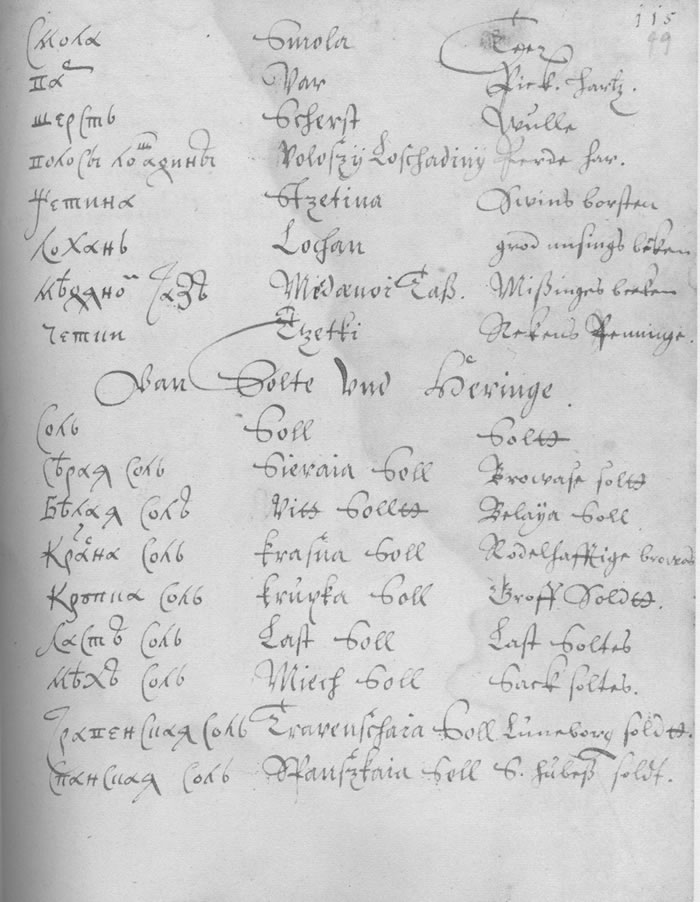 115
99
Смола Smola Teer
Па Var Pick. Hartz.
шерсть Scherst Wulle
полосы лошадины Voloszÿ Loschadinÿ Perde har.
четина Stzetina Swins borsten
лохань Lochan grod misings beken
мѣдяно тазъ Midænoi Taß. Mißinges becken
четки Tzetki Rekens Penninge.
Van Solte vnd Heringe.
Соль Soll Soltt
Сѣрая соль Sieraia Soll Browase soltt
Бѣлая соль Vitt Solltt Belaÿa Soll
Крана соль krasna Soll browas
Крупка соль krupka Soll Groff Soldtt.
Ластъ соль Last Soll Last Soltes
Мѣхъ соль Miech Soll Sack soltes.
соль Travenschaia Soll Luneborg soldtt.
Спанская соль Spanszkaia Soll S. soldt.